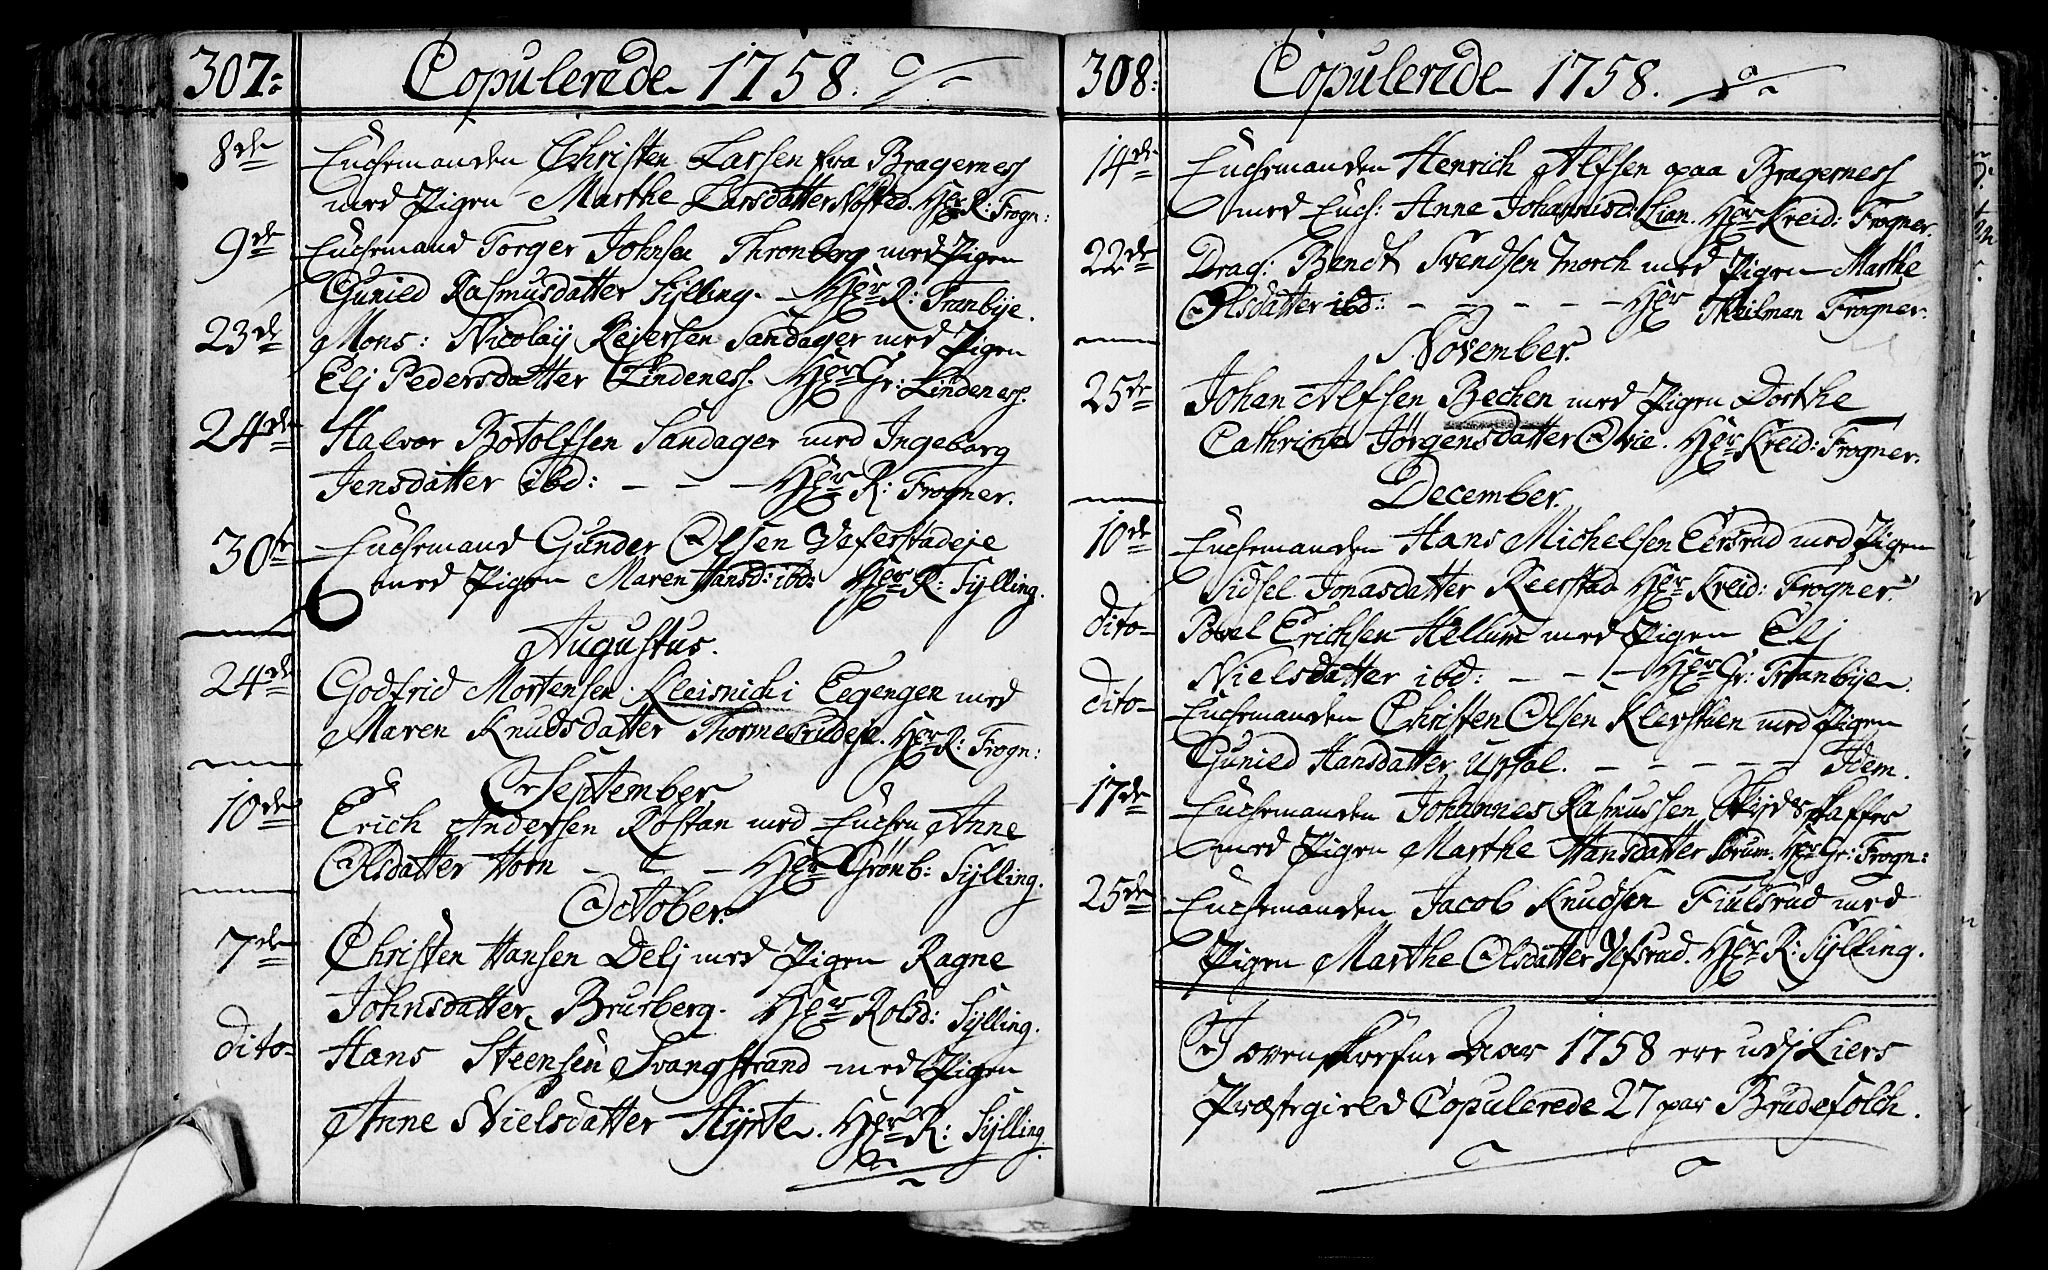 307:
Copulerede 1758.
8de Enchemanden Christen Larsen fra Bragerness
med Pigen Marthe Larsdatter Nøsted. Hr R: Frogn:
9de Enchemand Torger Johnsen Thronberg med Pigen
Gunild Rasmusdatter Sylling. Hr R: Tranbye.
23de Mons: Nicolay Reiersen Sandager med Pigen
Elj Pedersdatter Lindeness. Hr Gr: Lindeness.
24de Halvor Botolfsen Sandager med Ingeborg
Jensdatter ibd: - - - Hr R: Frogner.
30te Enchemand Gunder Olsen Veferstadeje
med Pigen Maren Hansd: ibd: Hr R: Sylling.
Augustus.
24de Godfrid Mortensen Kleisnicki Eegengen med
Maren Knudsdatter Thormesrudeje. Hr R: Frogn:
September
10de Erich Andersen Rostan med Enchen Anne
Olsdatter Horn - - - Hr Grønb: Sylling.
October.
7de Christen Hansen Delj med Pigen Ragne
Johnsdatter Brusberg. Hr Rolsd: Sylling.
dito- Hans Steensen Svangstrand med Pigen
Anne Nielsdatter Hyrte. Hr R: Sylling.
308:
Copulerede 1758.
14de Enchemanden Henrich Alfsen paa Bragerness
med Ench: Anne Johannisd: Lian. Hr Kreid: Frogner.
22de Drag: Bendt Svendsen Morch med Pigen Marthe
Olsdatter ibd: - - - - - Hr Meilman Frogner.
November.
25de Johan Alfsen Bechen med Pigen Dorthe
Cathrine Jørgensdatter Ovie. Hr Kreid: Frogner.
December.
10de Enchemanden Hans Michelsen Eersrud med Pigen
Sidsel Jonasdatter Reerstad Hr Kreid: Frogner.
dito- Povel Erichsen Hellum med Pigen Elj
Nielsdatter ibd: - - - Hr Gr: Tranbye.
dito- Enchemanden Christen Olsen Klerstuen med Pigen
Gunild Hansdatter Upsal. - - - - - Idem.
17de Enchemanden Johannes Rasmussen
med Pigen Marthe Hansdatter Sørum. Hr Gr: Frogn:
25de Enchemanden Jacob Knudsen Fiulsrud med
Pigen Marthe Olsdatter Vefsrud. Hr R: Sylling.
I ovenskrefne Aar 1758 ere udj Liers
Præstegield Copulerede 27 par Brudefolch.